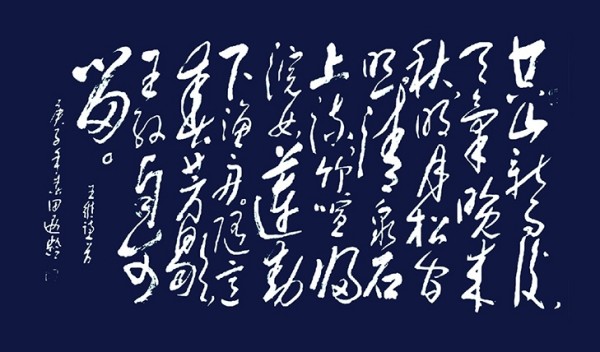 空山新雨後,
天氣晚来
秋明月松间
照清泉石
上流竹喧归
浣女莲动
下渔舟随意
春芳歇
王孙自可
留。
王維诗
庚子年